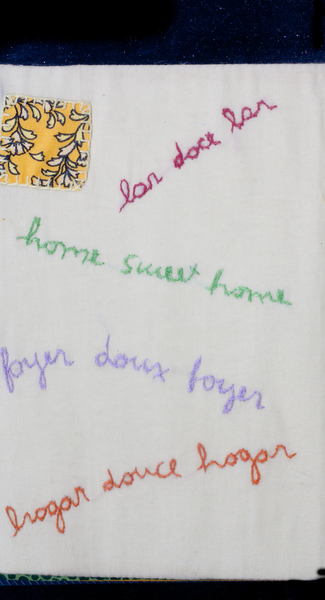 lar doce lar
home sweet home
foyer doux foyer
hogar douce hogar